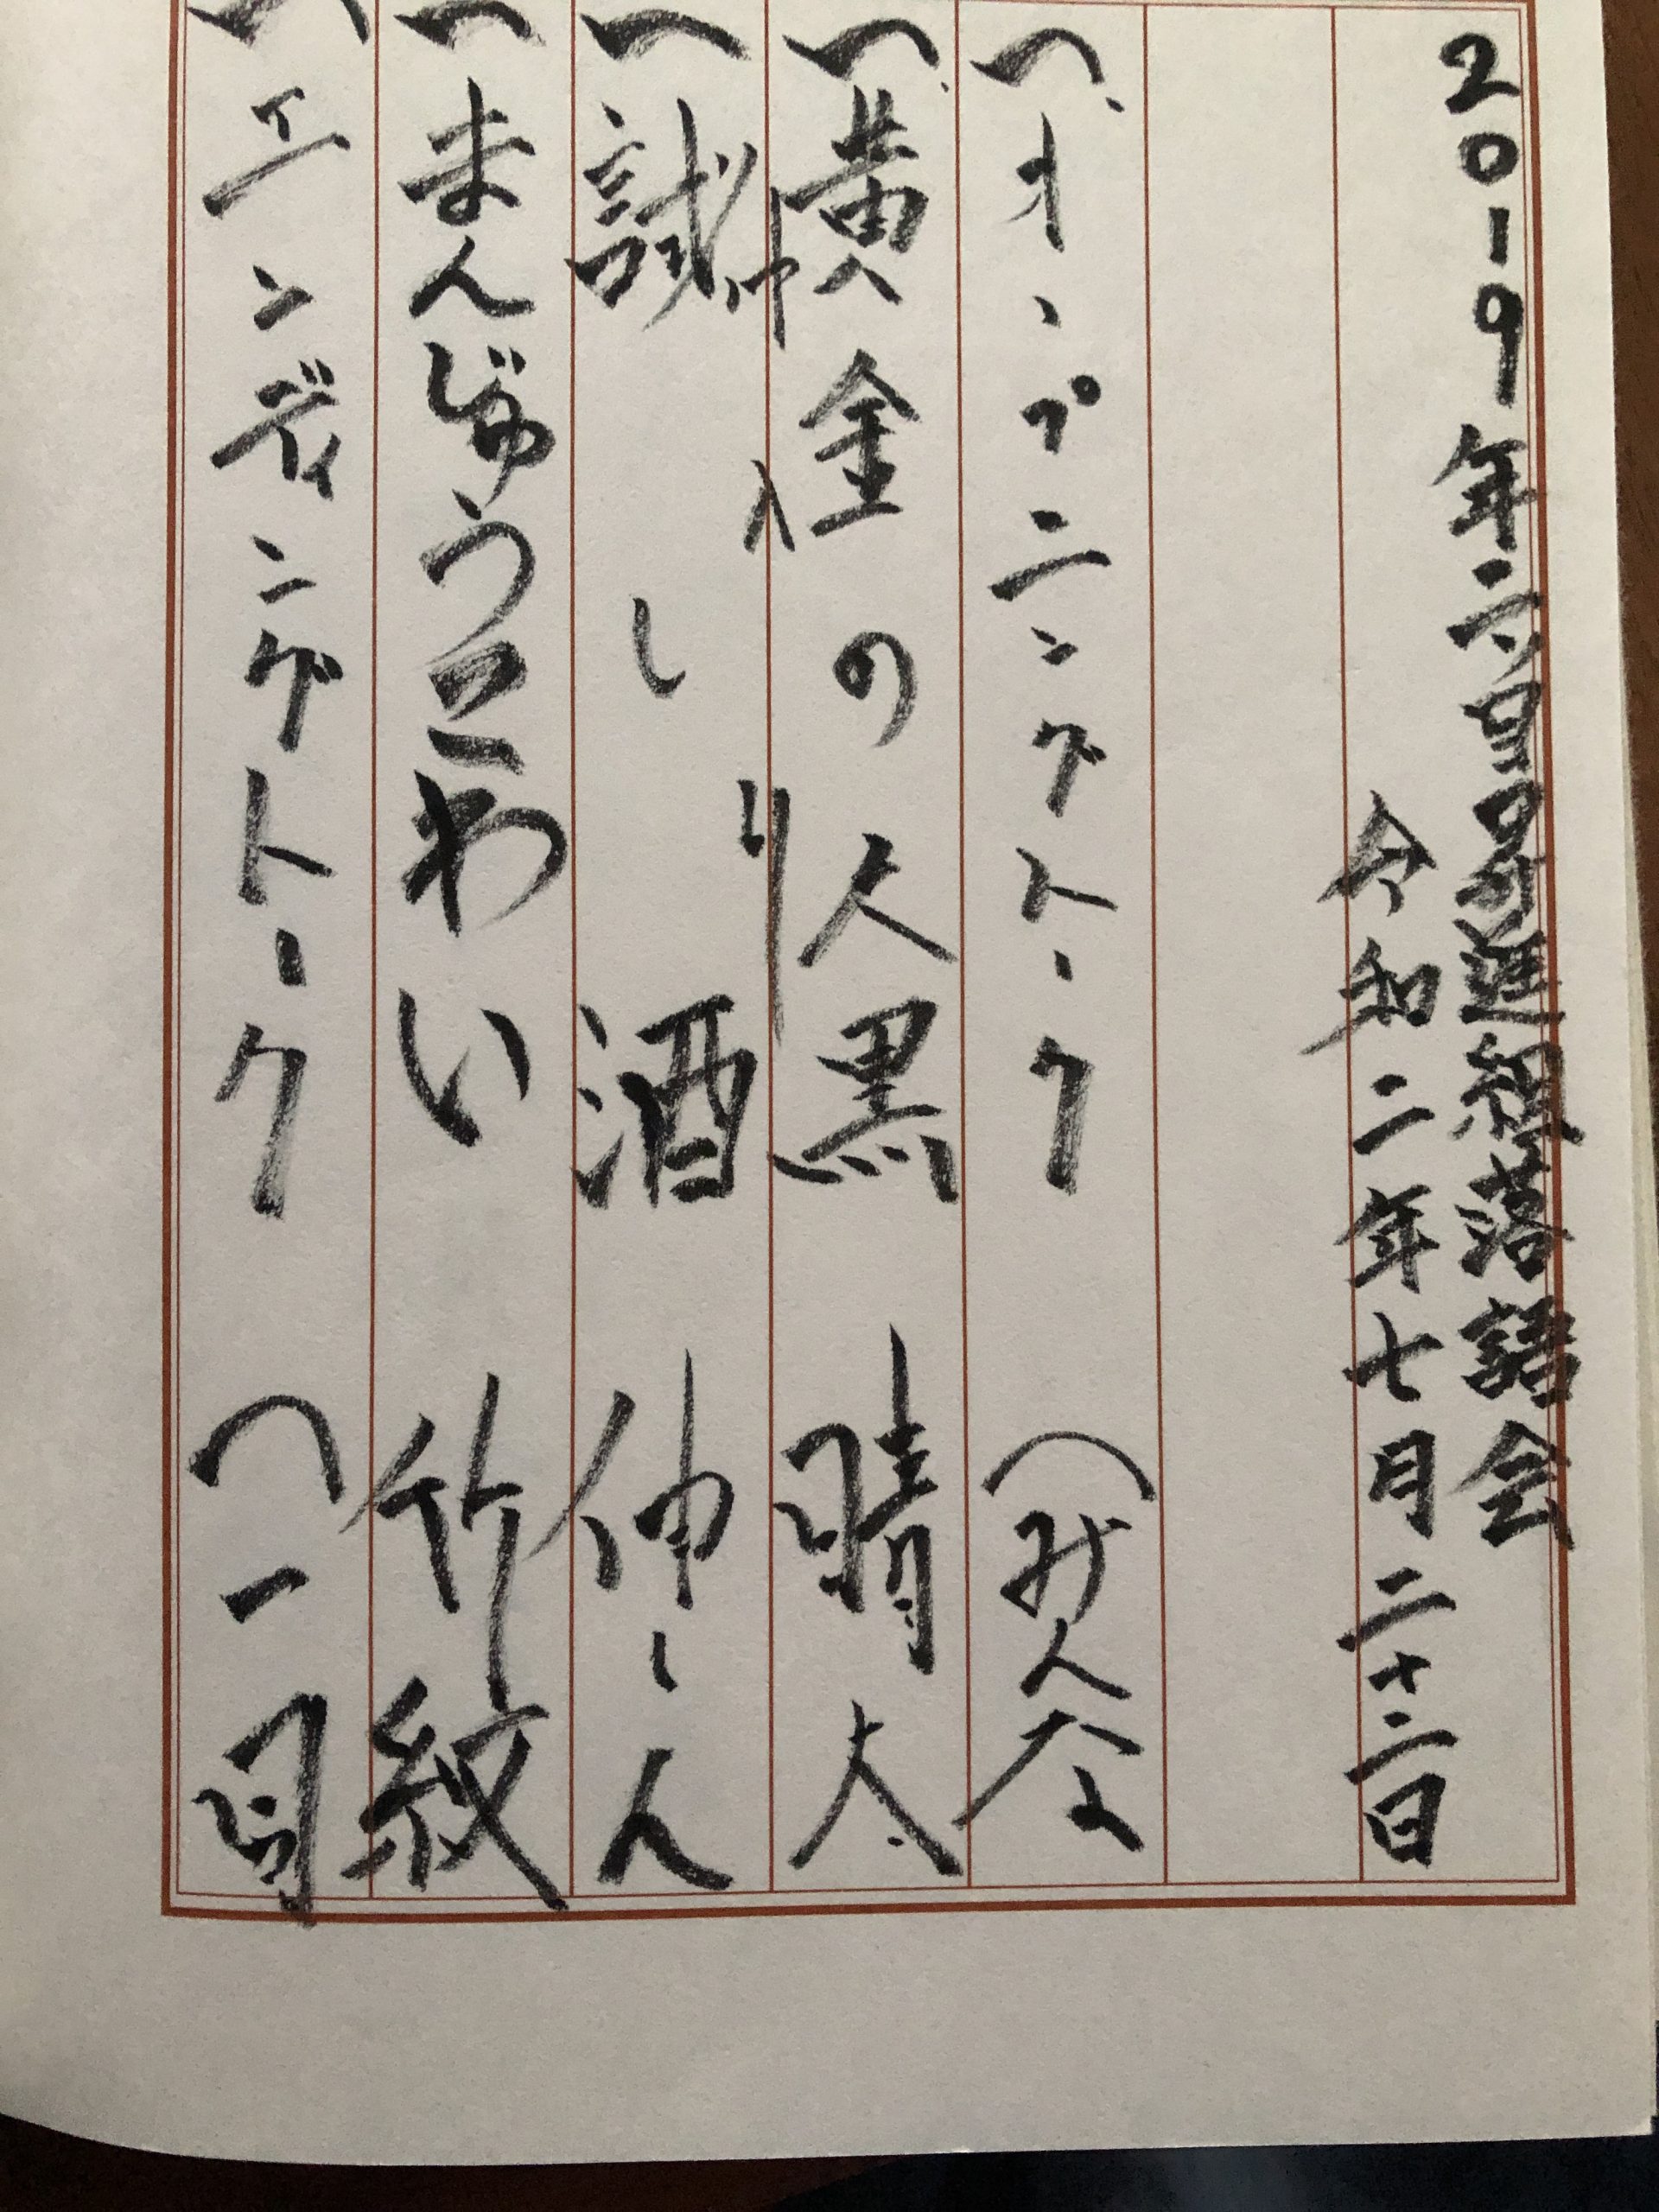 2019年二ツ目昇進組落語会
令和二年七月二十二日
〽オープニングトーク （みんな
〽黄金の大黒 晴太
仲入り
〽試し酒 伸しん
〽まんじゅうこわい 竹紋
〽エンディングトーク （一同